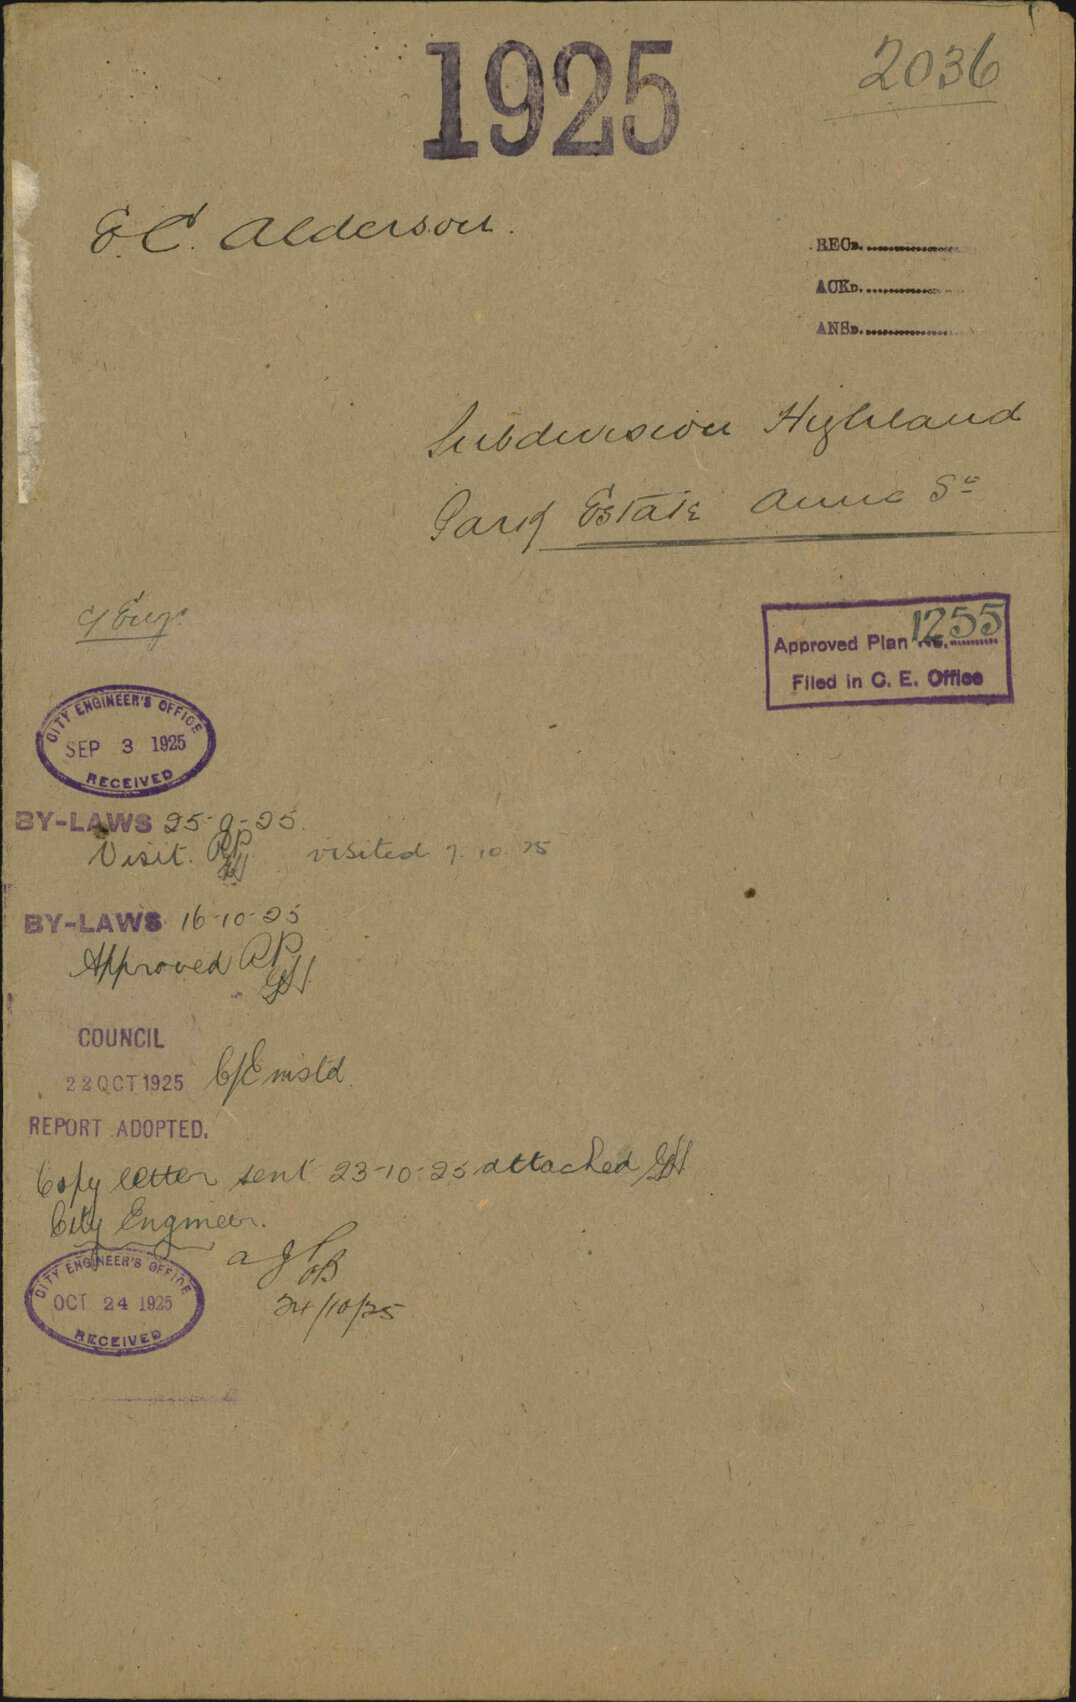 1925
2036
E.C. Alderson.
RECD.
ACKD.
ANSD.
Subdivision Highland
Park Estate Anne St
C/Engr.
Approved Plan No. 1255
Filed in C. E. Office
CITY ENGINEER'S OFFICE
SEP 3 1925
RECEIVED
BY-LAWS 25-9-25.
Visit. visited 7.10.25
BY-LAWS 16-10-25
Approved
COUNCIL
22 OCT 1925 C/E instd.
REPORT ADOPTED.
Copy letter sent 23-10-25 attached
City Engineer.
CITY ENGINEER'S OFFICE
OCT 24 1925
RECEIVED
24/10/25